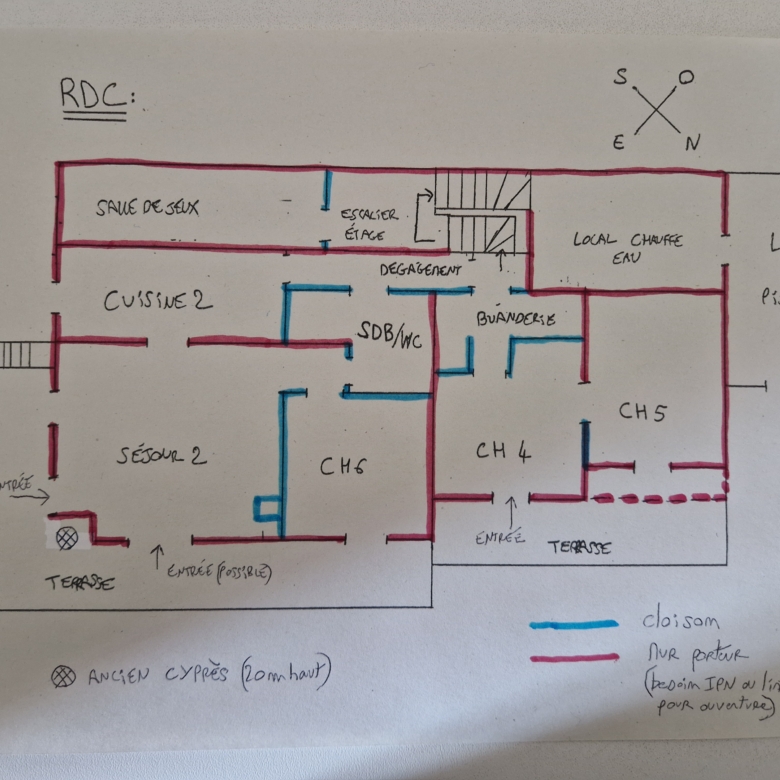 RDC:
S O
E N
SALLE DE JEUX
ESCALIER
ÉTAGE
LOCAL CHAUFFE
EAU
L
Pis
DEGAGEMENT
CUISINE 2
SDB/WC
BUANDERIE
CH 5
SÉJOUR 2
CH6
CH 4
NTRÉE
ENTRÉE
TERRASSE
ENTRÉE (POSSIBLE)
TERRASSE
cloison
MUR PORTEUR
(besoin IPN ou lin
pour ouverture)
ANCIEN CYPRÈS (20m haut)